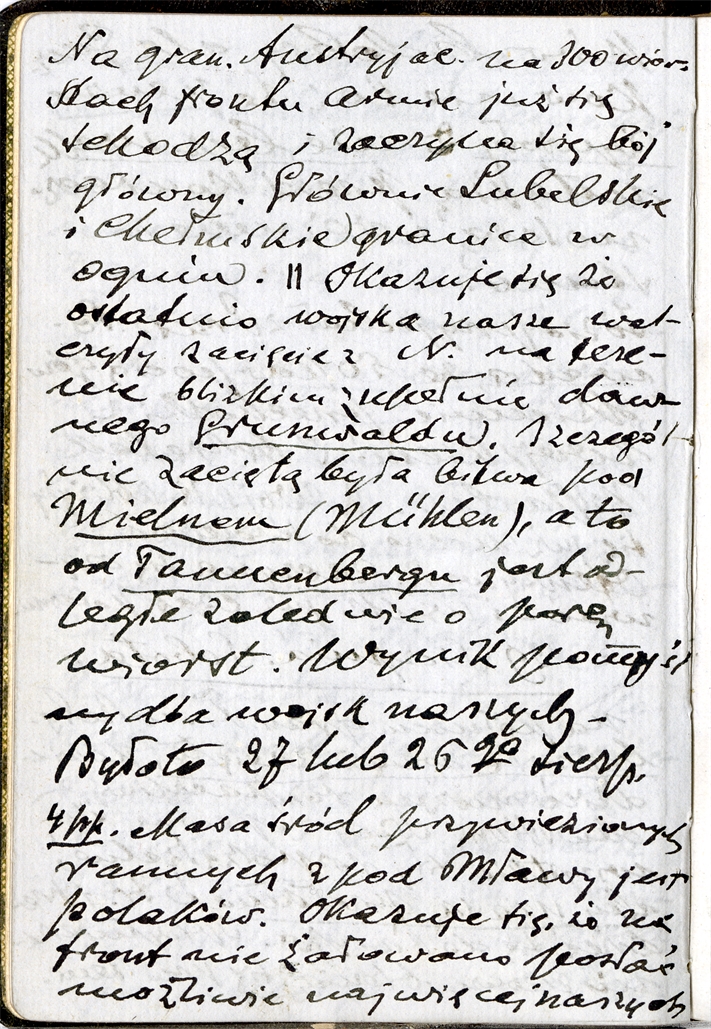 Na gran. Austryjac. na 300 wior-
stach frontu armie już się
schodzą i zaczyna się bój
główny. Głównie Lubelskie
i Chełmskie granice w
ogniu. || Okazuje się że
ostatnio wojska nasze wal-
czyły zacięcie z N. na tere-
nie blizkim zupełnie daw-
nego Grunwaldu. Szczegól-
nie zaciętą była bitwa pod
Mielnem (Mühlen), a to
od Tannenbergu jest od-
ległe zaledwie o parę
wiorst. Wynik pomyśl
ny dla wojsk naszych.
Było to 27 lub 26go sierp.
4 pp. Masa śród przywiezionych
rannych z pod Mławy jest
polaków. Okazuje się, że na
front nie żałowano posłać
możliwie najwięcej naszych